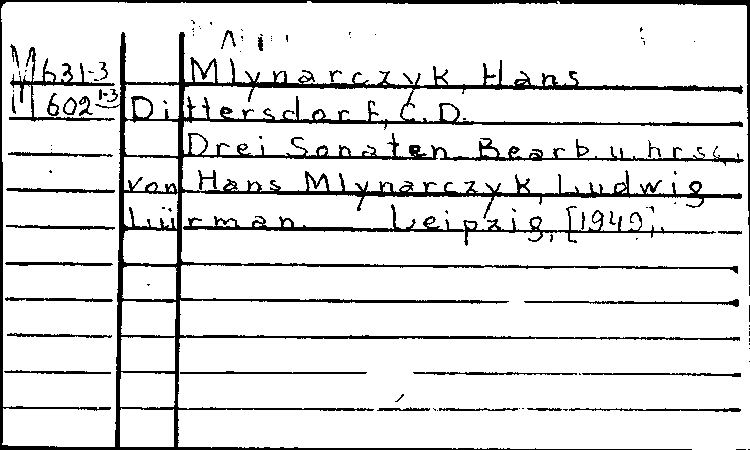 M 631 1-3 Mlynarczyk, Hans
602 1-3 Dittersdorf, C. D.
Drei Sonaten. Bearb. u. hrsg.
von Hans Mlynarczyk, Ludwig
Lürman. Leipzig, [1949].